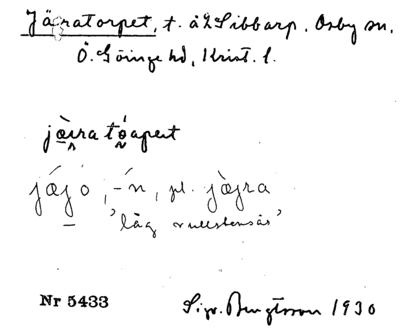 Järatorpet, t. å 2 Sibbarp, Osby sn,
Ö. Göinge hd, Krist. l.
jä̀ɪratóapeut
jǽjó, -́n, pl. jæ̀jra
'låg rullstensås'
Nr 5433 Sigv. Bengtsson 1930